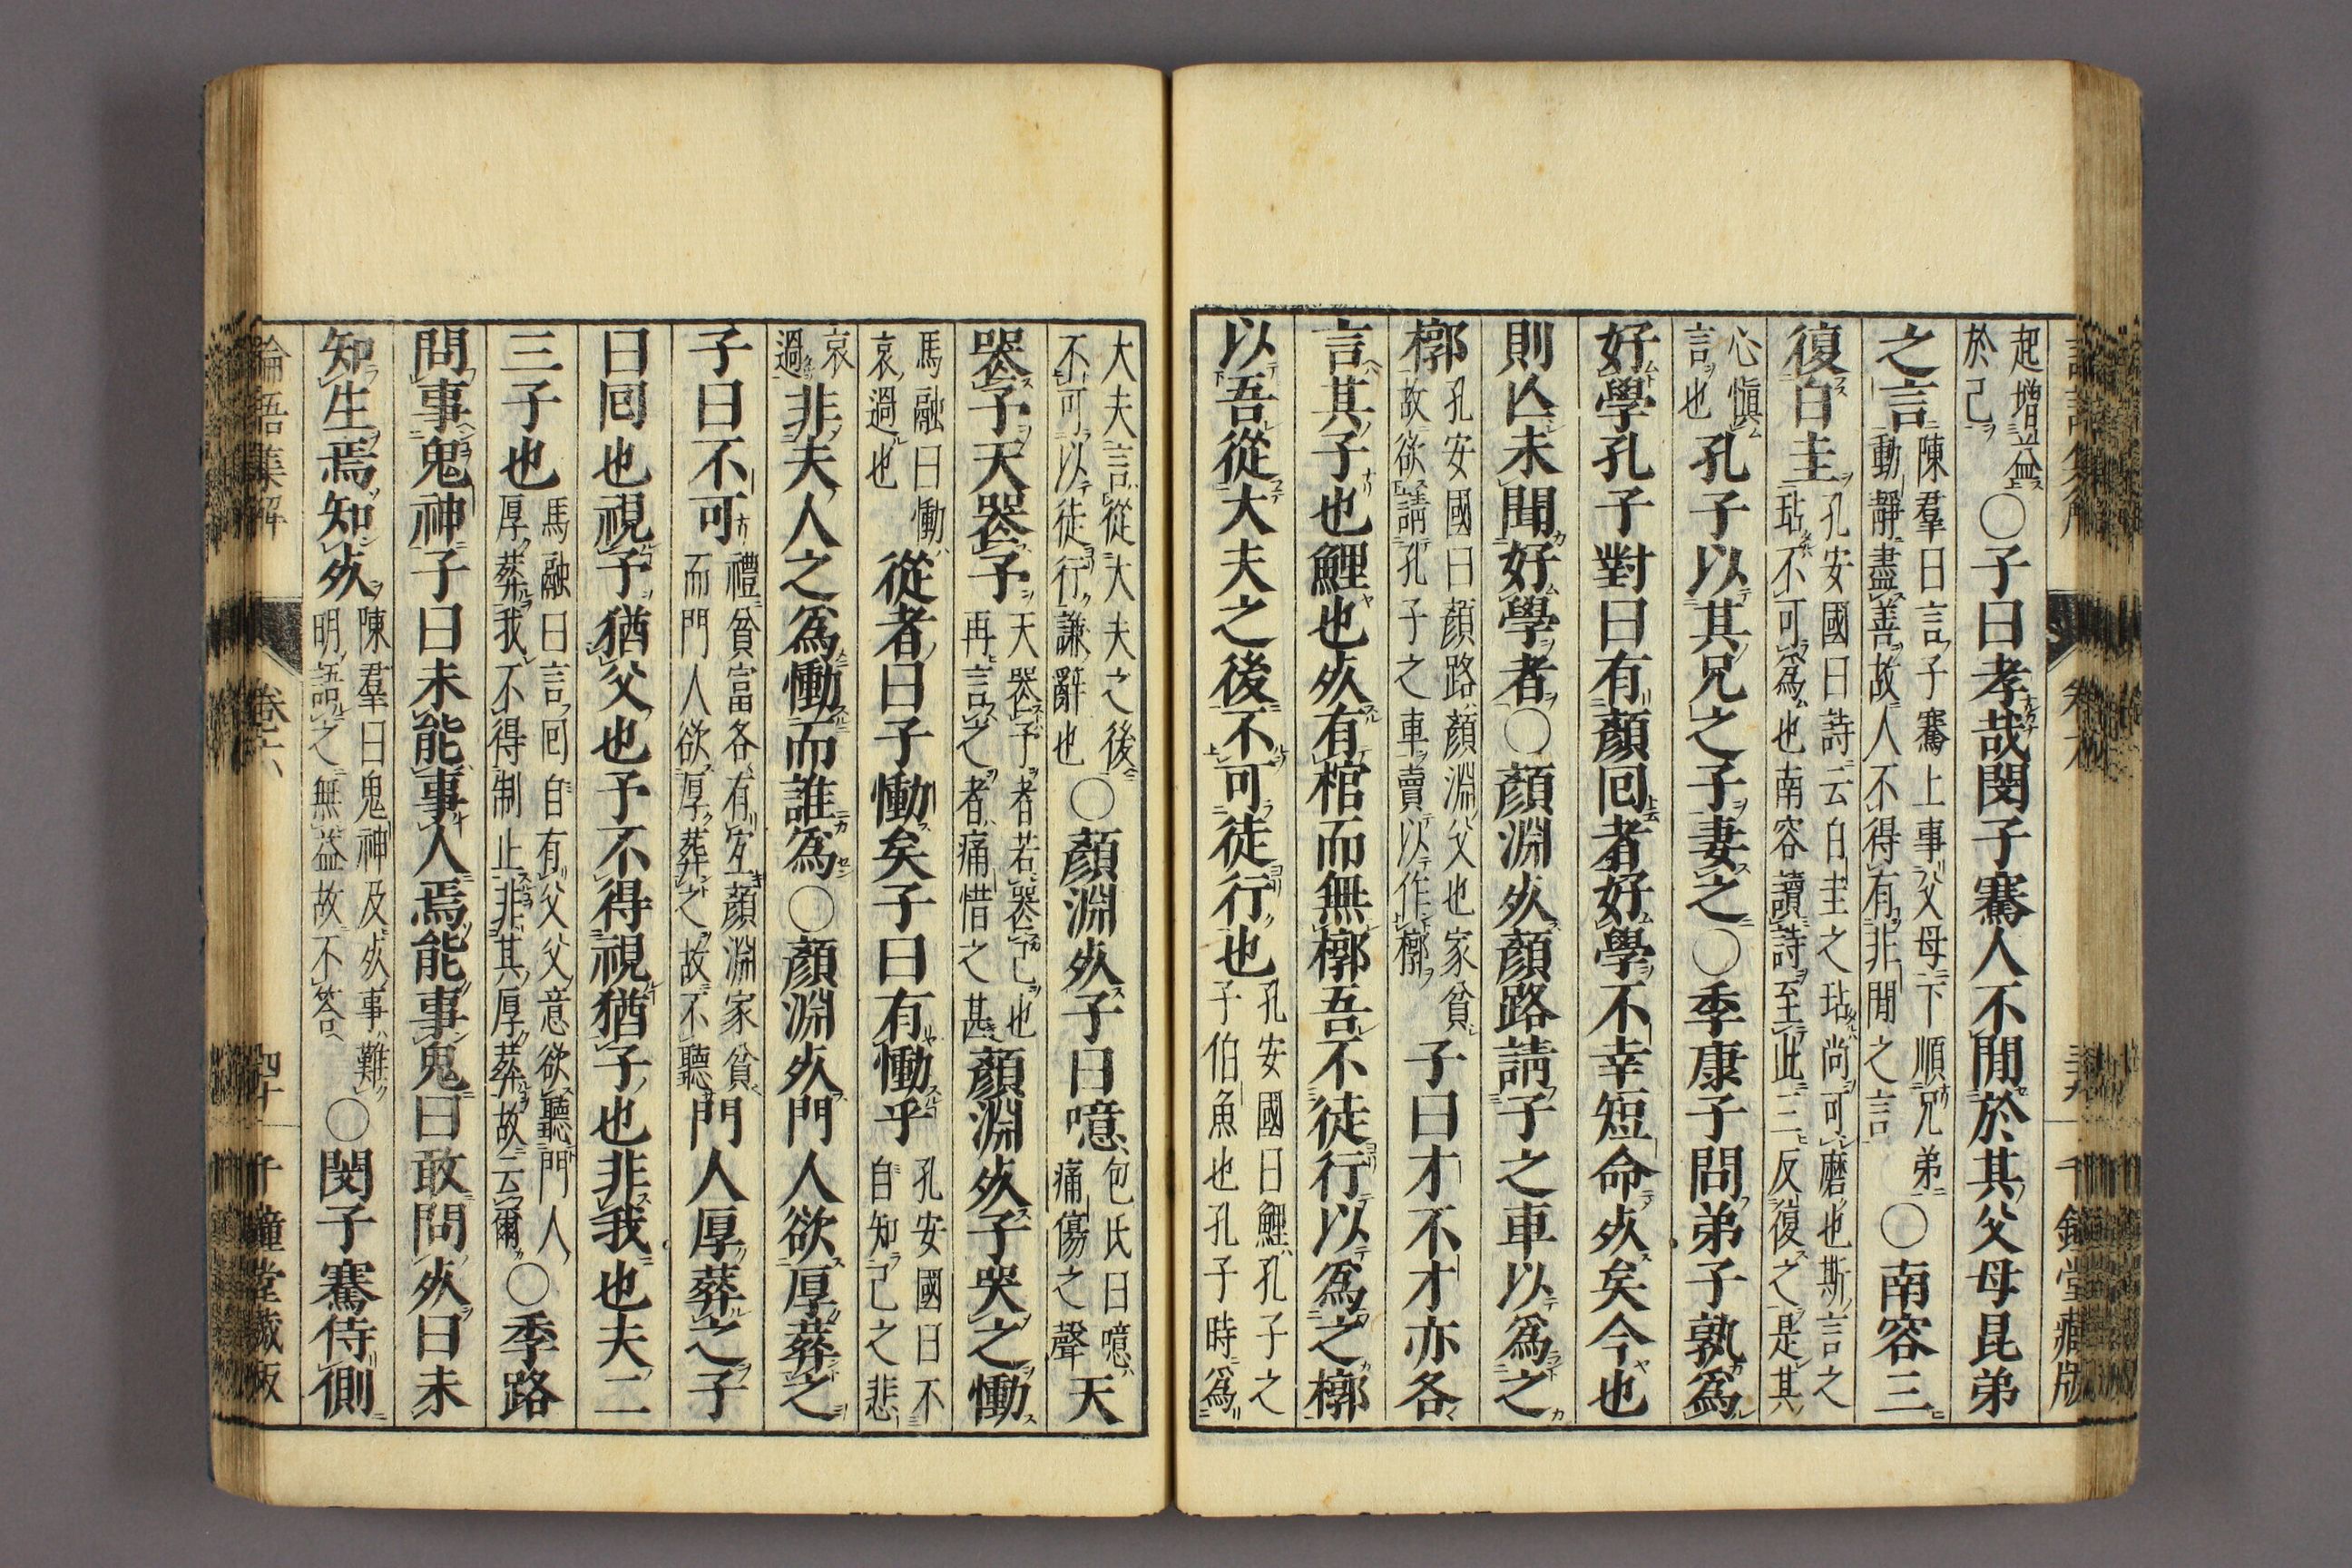 起增益
於己
○子曰孝哉閔子騫人不閒於其父母昆弟
之言
陳羣曰言子騫上事父母下順兄弟
動靜盡善故人不得有非閒之言
○南容三
復白圭
孔安國曰詩云白圭之玷尚可磨也斯言之
玷不可爲也南容讀詩至此三反復之是其
心愼
言也
孔子以其兄之子妻之○季康子問弟子孰爲
好學孔子對曰有顏回者好學不幸短命死矣今也
則亾未聞好學者○顏淵死顏路請子之車以爲之
槨
孔安國曰顏路顏淵父也家貧
故欲請孔子之車賣以作槨
子曰才不才亦各
言其子也鯉也死有棺而無槨吾不徒行以爲之槨
以吾從大夫之後不可徒行也
孔安國曰鯉孔子之
子伯魚也孔子時爲
大夫言從大夫之後
不可以徒行謙辭也
○顏淵死子曰噫
包氏曰噫
痛傷之聲
天
喪予天喪予
天喪予者若喪己也
再言之者痛惜之甚
顏淵死子哭之慟
馬融曰慟
哀過也
從者曰子慟矣子曰有慟乎
孔安國曰不
自知己之悲
哀
過
非夫人之爲慟而誰爲○顏淵死門人欲厚葬之
子曰不可
禮貧富各有宜顏淵家貧
而門人欲厚葬之故不聽
門人厚葬之子
曰回也視予猶父也予不得視猶子也非我也夫二
三子也
馬融曰言回自有父父意欲聽門人
厚葬我不得制止非其厚葬故云爾
○季路
問事鬼神子曰未能事人焉能事鬼曰敢問死曰未
知生焉知死
陳羣曰鬼神及死事難
明語之無益故不答
○閔子騫侍側
論語集解 卷六 四十 千鍾堂藏版